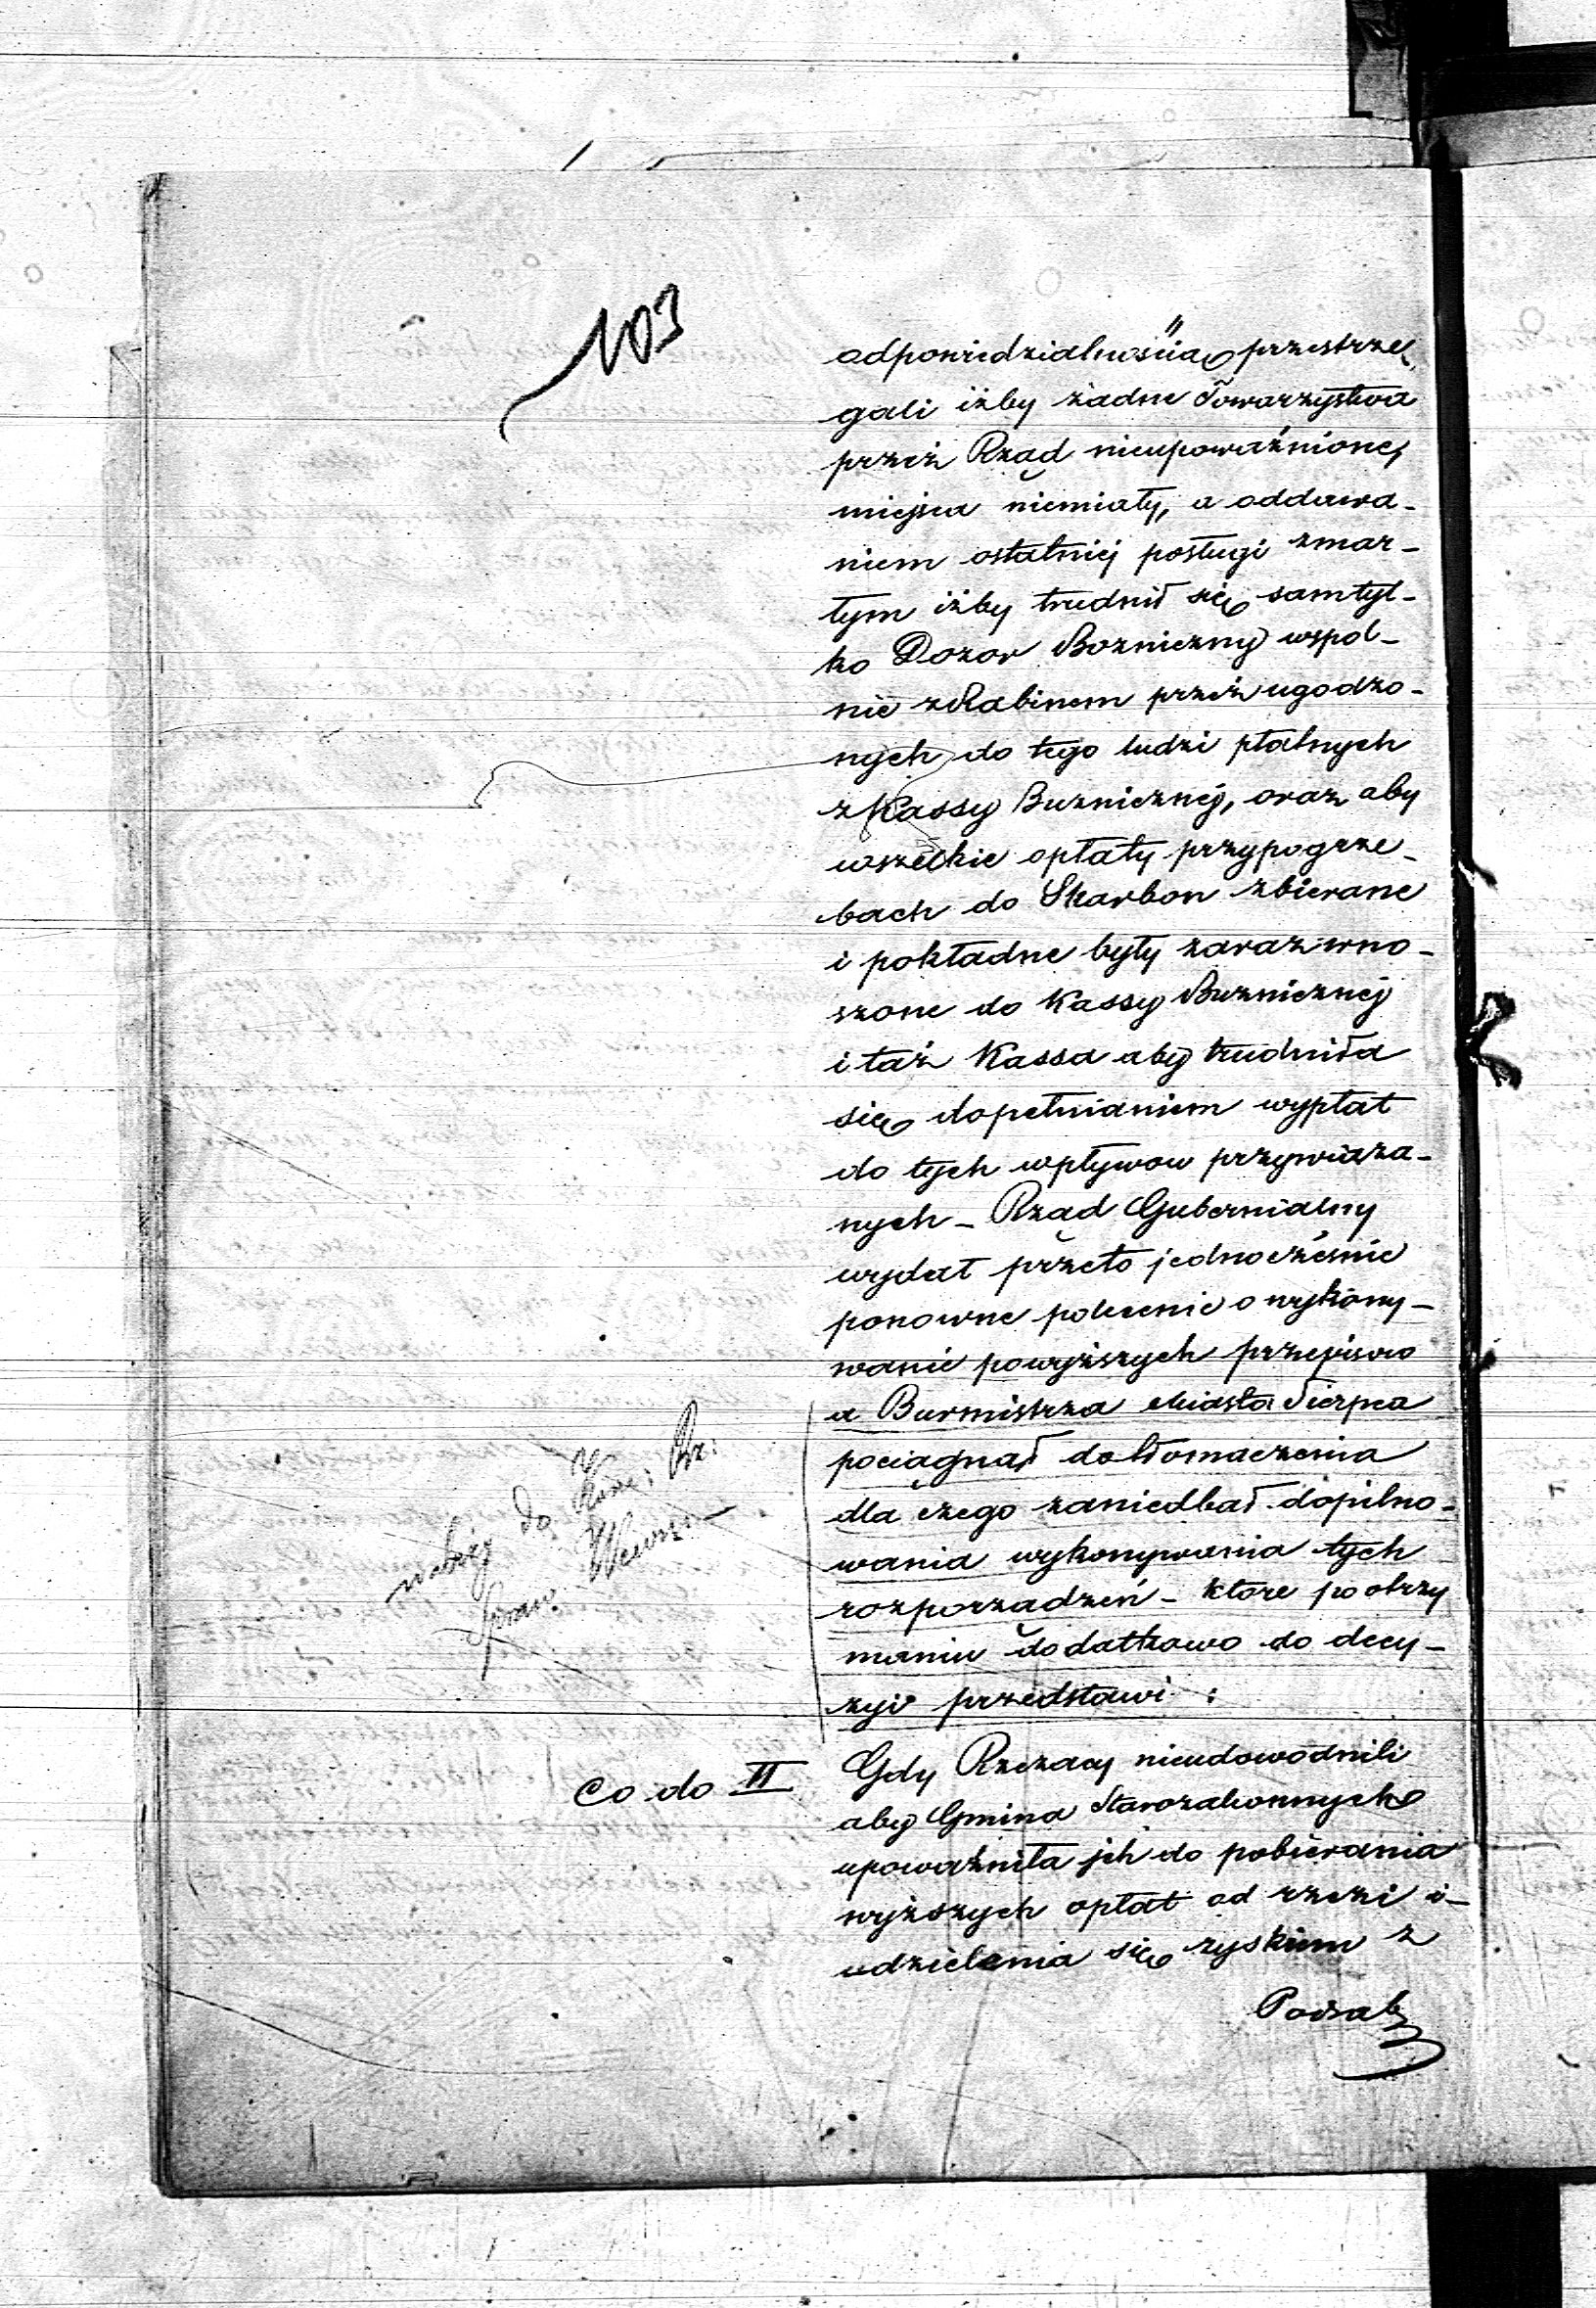 103
odpowiedzialnością przestrze-
gali iżby żadne Towarzystwa
przez Rząd nieupoważnione,
miejsca niemiały, a oddawa-
niem ostatniej posługi zmar-
tym iżby trudnił się samtyl-
ko Dozor Bozniczny wspol-
nie zRabinem przez ugodzo-
nych do tego ludzi płatnych
z Kassy Buzniczney, oraz aby
wszelkie opłaty przypogrze-
bach do Skarbon zbierane
i pokładne były zaraz wno-
szone do Kassy Buzniczney
i taż Kassa aby trudniła
się dopełnianiem wypłat
do tych wpływow przywiąza-
nych - Rząd Gubernialny
wydał przeto jednocześnie
ponowne polecenie o wykony-
wanie powyższych przepisow
a Burmistrza Miasta Sierpca
pociągnął do tłomaczenia
dla czego zaniedbał dopilno-
wania wykonywania tych
rozporządzeń - ktore po otrzy
maniu dodatkowo do decy-
zyi przedstawi :
do Kom: Rz:
Spraw Wewn:
Co do II
Gdy Rzezacy nieudowodnili
aby Gmina Starozakonnych
upoważniła jch do pobierania
wyższych opłat od rzezi i
udzielenia się zyskiem z
Podrab